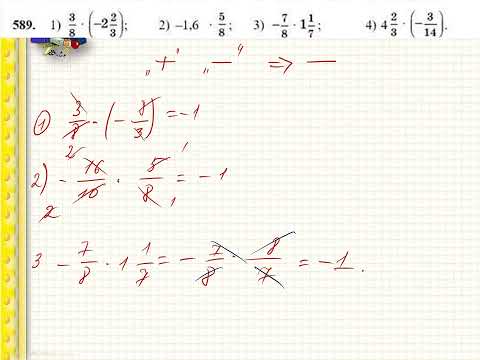 589. 1) 3/8 · (−2 2/3); 2) −1,6 · 5/8; 3) −7/8 · 1 1/7; 4) 4 2/3 · (−3/14).
„+" „−" ⇒ −
① 3/8 · (−8/3) = −1
2) −16/10 · 5/8 = −1
3 −7/8 · 1 1/7 = −7/8 · 8/7 = −1.